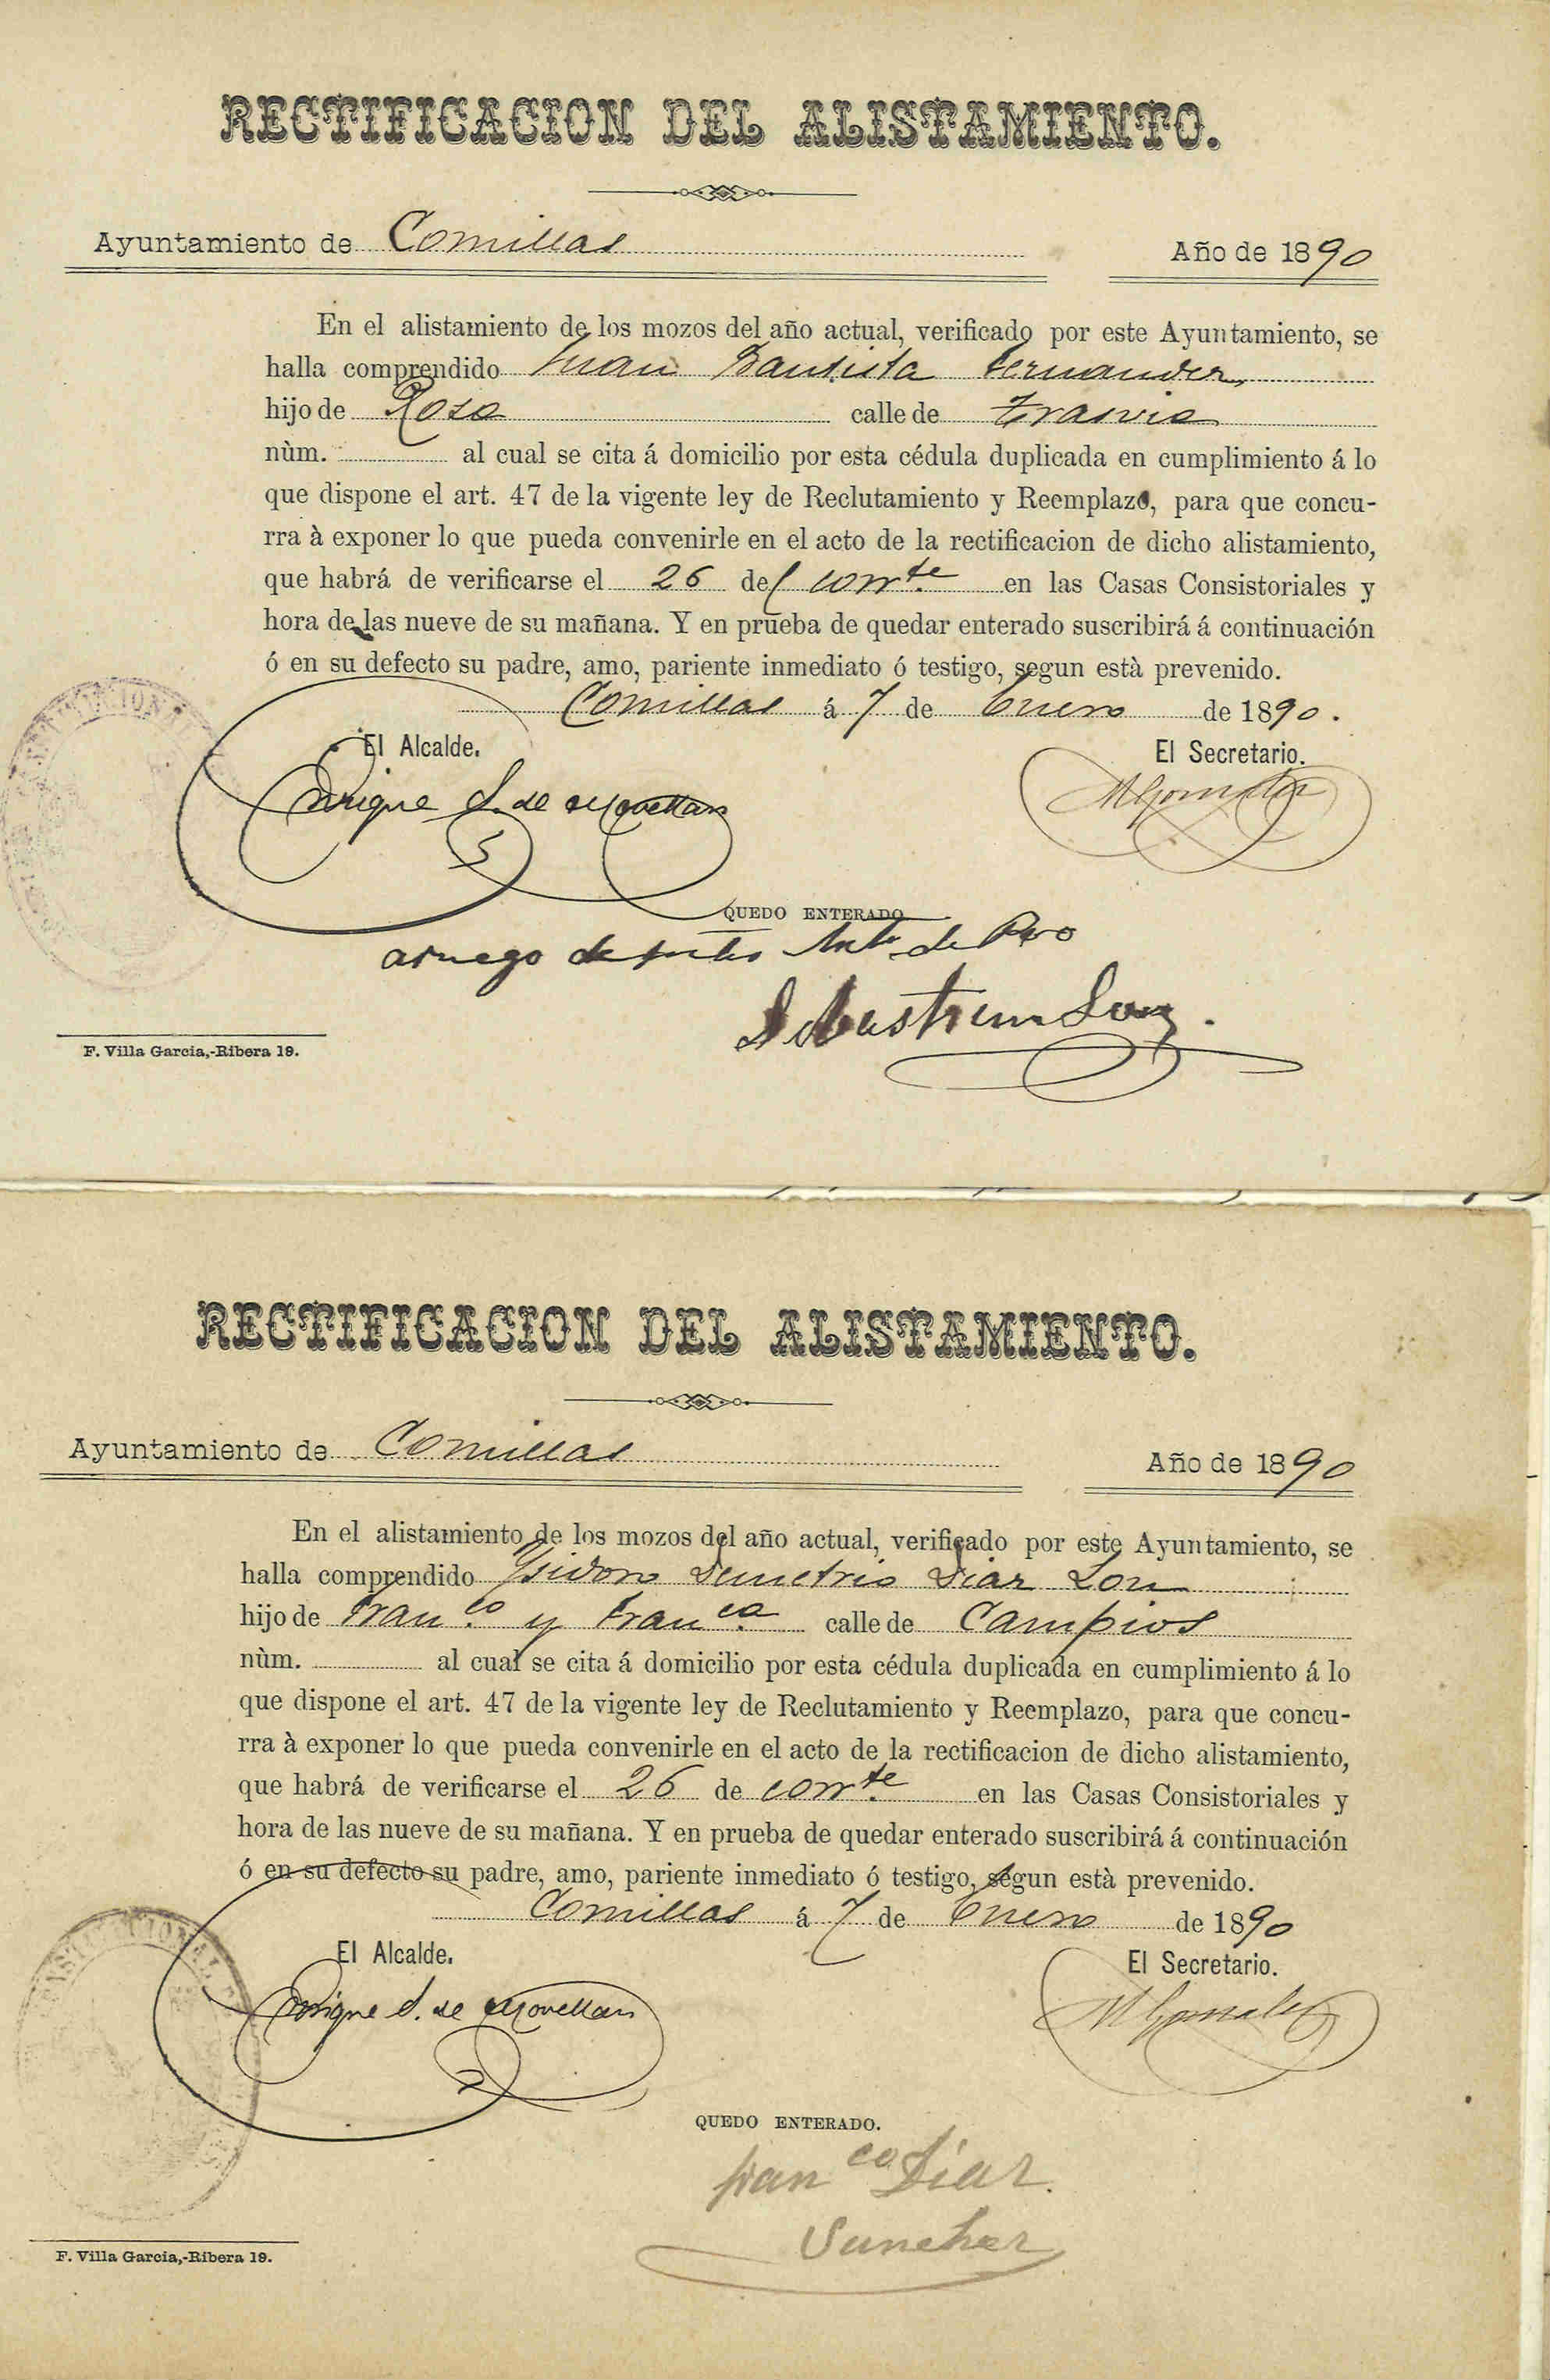 RECTIFICACION DEL ALISTAMIENTO.
Ayuntamiento de Comillas Año de 1890
En el alistamiento de los mozos del año actual, verificado por este Ayuntamiento, se
halla comprendido Juan Bautista Fernandez
hijo de Rosa calle de Trasvia
nùm. al cual se cita á domicilio por esta cédula duplicada en cumplimiento á lo
que dispone el art. 47 de la vigente ley de Reclutamiento y Reemplazo, para que concu-
rra à exponer lo que pueda convenirle en el acto de la rectificacion de dicho alistamiento,
que habrá de verificarse el 26 del corrte. en las Casas Consistoriales y
hora de las nueve de su mañana. Y en prueba de quedar enterado suscribirá á continuación
ó en su defecto su padre, amo, pariente inmediato ó testigo, segun està prevenido.
Comillas á 7 de Enero de 1890.
El Alcalde. El Secretario.
Enrique S. de Movellan MGonzalez
QUEDO ENTERADO.
aruego de
F. Villa Garcia,-Ribera 19.
RECTIFICACION DEL ALISTAMIENTO.
Ayuntamiento de Comillas Año de 1890
En el alistamiento de los mozos del año actual, verificado por este Ayuntamiento, se
halla comprendido Ysidoro Demetrio Diaz
hijo de Franco. y Franca. calle de Campios
nùm. al cual se cita á domicilio por esta cédula duplicada en cumplimiento á lo
que dispone el art. 47 de la vigente ley de Reclutamiento y Reemplazo, para que concu-
rra à exponer lo que pueda convenirle en el acto de la rectificacion de dicho alistamiento,
que habrá de verificarse el 26 de corrte. en las Casas Consistoriales y
hora de las nueve de su mañana. Y en prueba de quedar enterado suscribirá á continuación
ó en su defecto su padre, amo, pariente inmediato ó testigo, segun està prevenido.
Comillas á 7 de Enero de 1890
El Alcalde. El Secretario.
Enrique S. de Movellan MGonzalez
QUEDO ENTERADO.
Franco Díaz.
Sanchez
F. Villa Garcia,-Ribera 19.